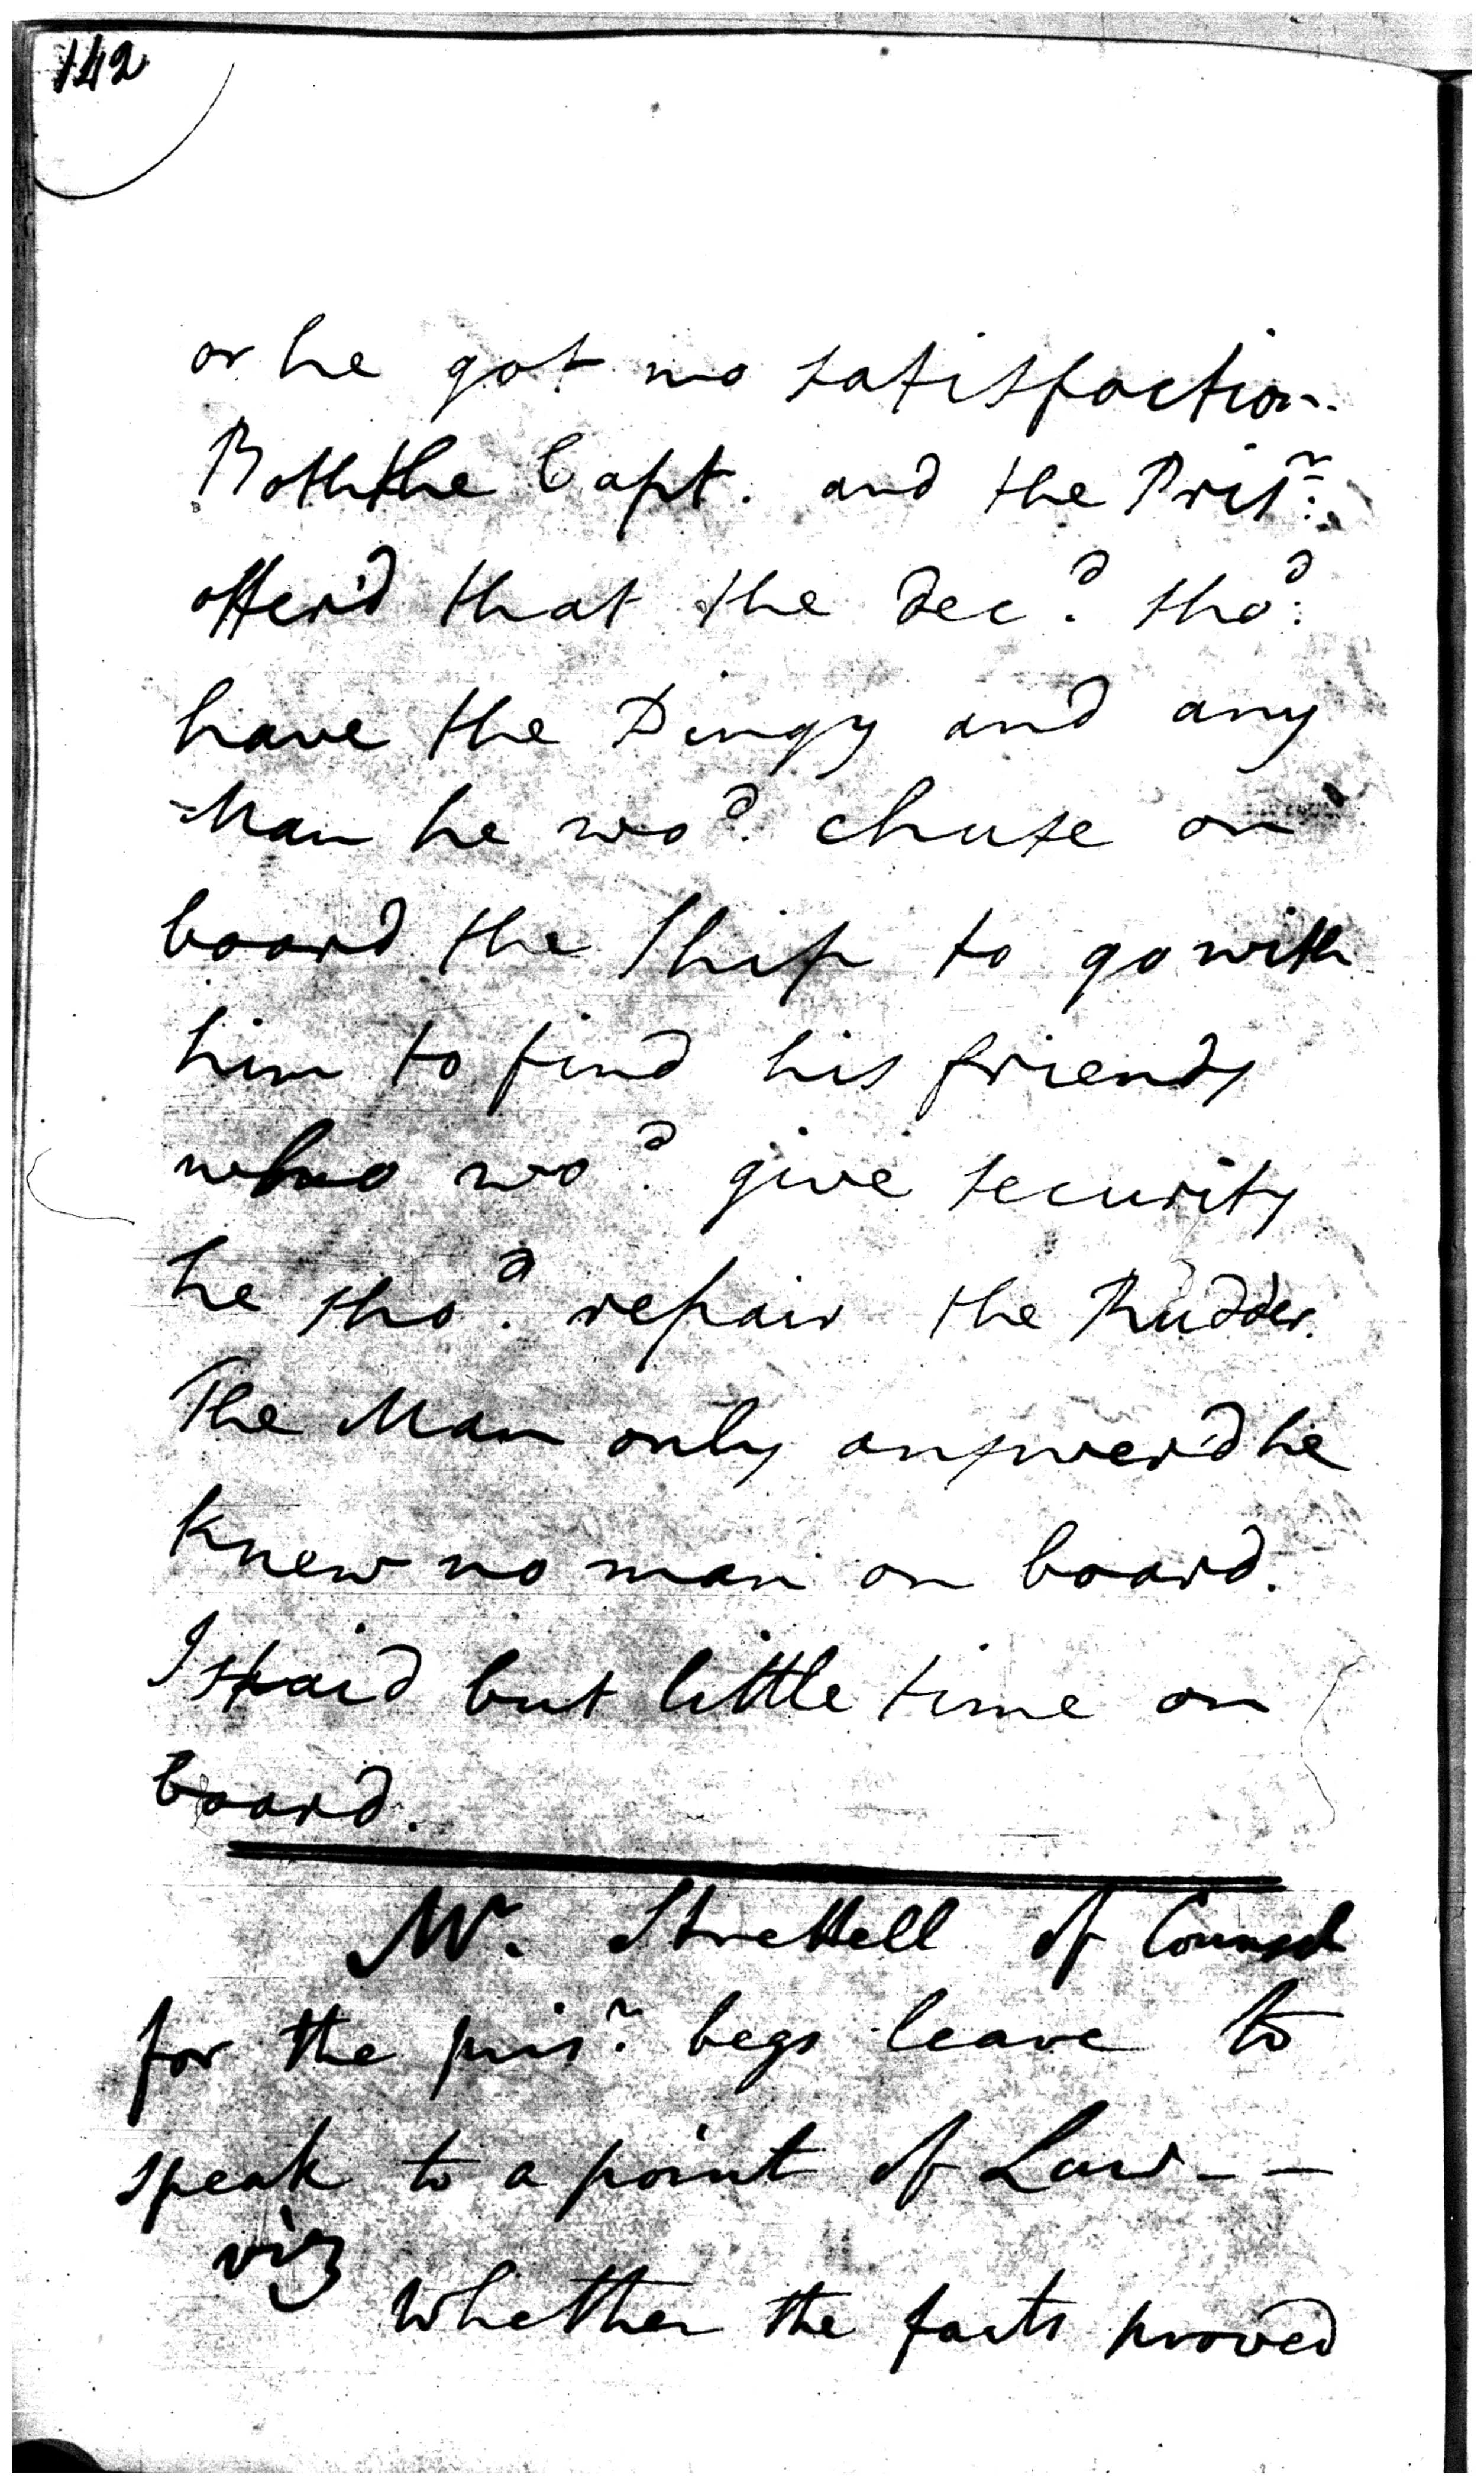 142
or he got no satisfaction.
Both the Capt. and the Prisr.
offer'd that the decd. shod.
have the Dingy and any
Man he wod. chuse on
board the Ship to go with
him to find his friends
who wod. give security
he shod. repair the Rudder.
The Man only answer'd he
knew no man on board.
I staid but little time on
board.
Mr. Strettell of Counsel
for the prisr. begs leave to
speak to a point of Law - -
viz
Whether the facts proved